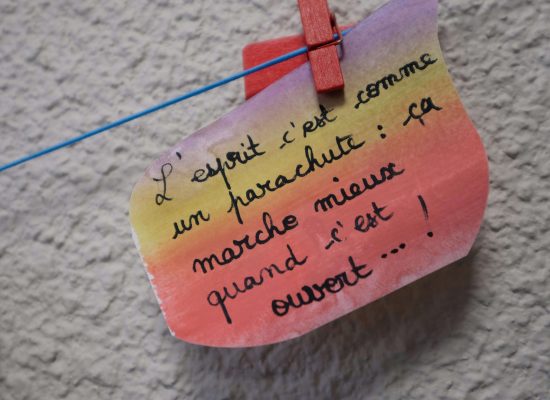 L'esprit c'est comme
un parachute : ça
marche mieux
quand c'est
ouvert... !